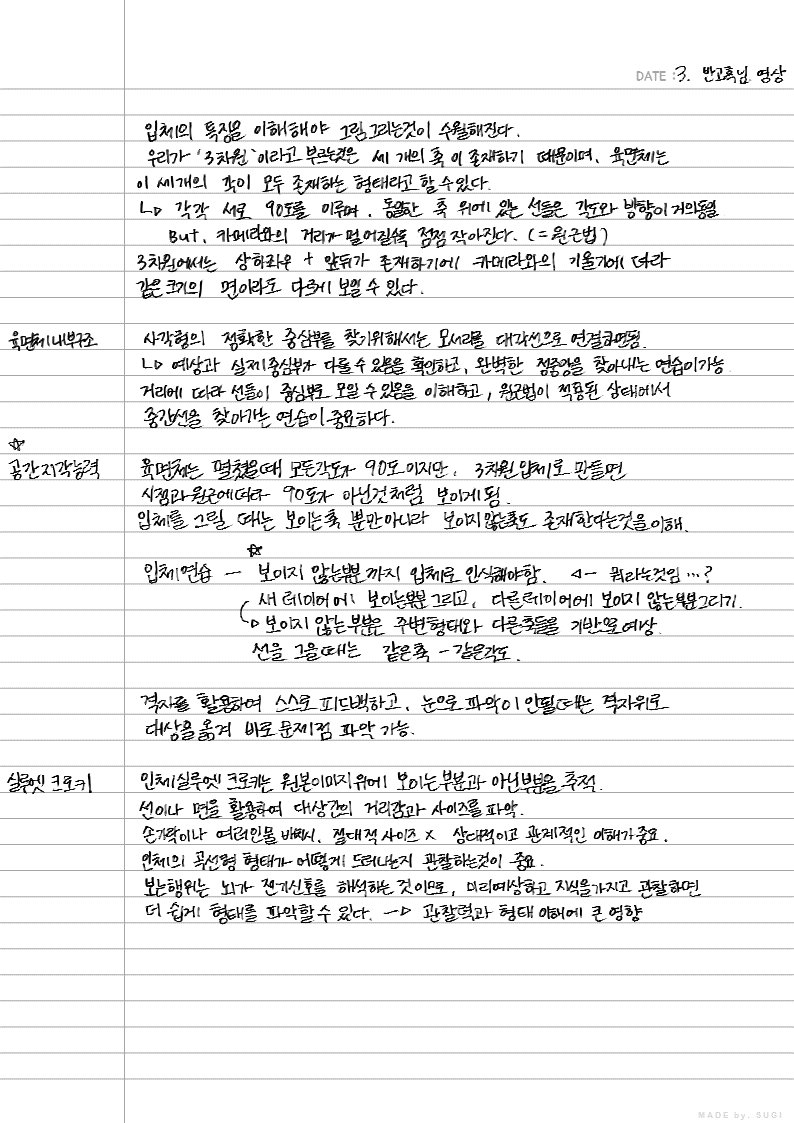 DATE : 3. 반고흑님 영상
입체의 특징을 이해해야 그림그리는것이 수월해진다.
우리가 '3차원'이라고 부르는것은 세 개의 축이 존재하기 때문이며, 육면체는
이 세개의 각이 모두 존재하는 형태라고 할 수 있다.
↳ 각각 서로 90도를 이루며, 동일한 축 위에 있는 선들은 각도와 방향이 거의동일
But, 카메라와의 거리가 멀어질수록 점점 작아진다. (= 원근법)
3차원에서는 상하좌우 + 앞뒤가 존재하기에 카메라와의 기울기에 따라
같은크기의 면이라도 다르게 보일 수 있다.
육면체 내부구조 사각형의 정확한 중심부를 찾기위해서는 모서리를 대각선으로 연결하면됨.
↳ 예상과 실제중심부가 다를 수 있음을 확인하고, 완벽한 정중앙을 찾아내는 연습이가능.
거리에 따라 선들이 중심부로 모일 수 있음을 이해하고, 원근법이 적용된 상태에서
중간선을 찾아가는 연습이 중요하다.
☆
공간지각능력 육면체는 펼쳤을때 모든각도가 90도이지만, 3차원입체로 만들면
시점과 원근에따라 90도가 아닌것처럼 보이게 됨.
입체를 그릴 때는 보이는축 뿐만아니라 보이지않는축도 존재한다는것을 이해.
☆
입체연습 — 보이지 않는부분까지 입체로 인식해야함. ◁— 뭐라는것임…?
새 레이어에 보이는부분그리고, 다른레이어에 보이지 않는부분그리기.
↳ 보이지 않는 부분은 주변형태와 다른축들을 기반으로예상.
선을 그을때는 같은축 - 같은각도.
격자를 활용하여 스스로 피드백하고, 눈으로 파악이 안될때는 격자위로
대상을 옮겨 바로 문제점 파악 가능.
실루엣 크로키 인체실루엣 크로키는 원본이미지위에 보이는부분과 아닌부분을 추적.
선이나 면을 활용하여 대상간의 거리감과 사이즈를 파악.
손가락이나 여러인물 배치시, 절대적 사이즈 X 상대적이고 관계적인 이해가중요.
인체의 곡선형 형태가 어떻게 드러나는지 관찰하는것이 중요.
보는행위는 뇌가 전기신호를 해석하는 것이므로, 미리예상하고 지식을가지고 관찰하면
더 쉽게 형태를 파악할 수 있다. —▷ 관찰력과 형태 이해에 큰 영향
MADE by. SUGI